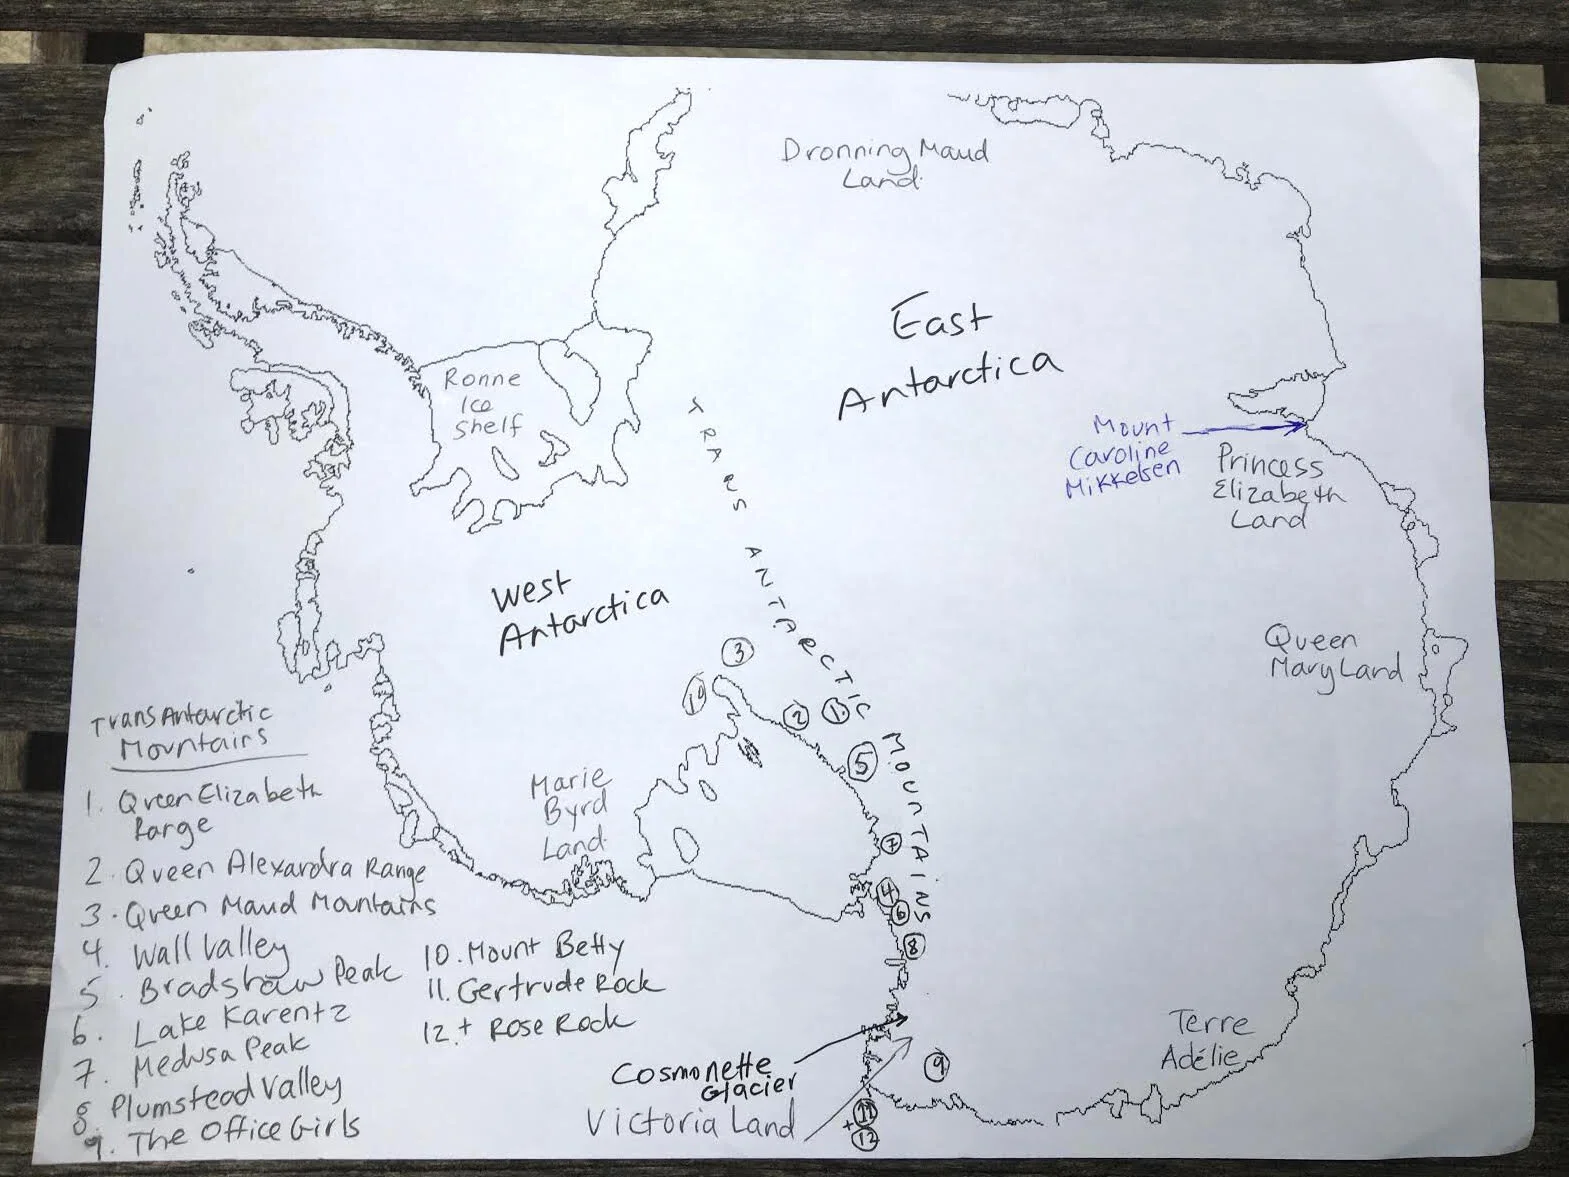 Dronning Maud
Land
East
Antarctica
Ronne
Ice
Shelf
TRANS ANTARCTIC MOUNTAINS
Mount
Caroline
Mikkelsen
Princess
Elizabeth
Land
West
Antarctica
Queen
Mary Land
3
10
2
1
5
7
4
6
8
9
11
+
12
Marie
Byrd
Land
Terre
Adélie
Cosmonette
Glacier
Victoria Land
TransAntarctic
Mountains
1. Queen Elizabeth
Range
2. Queen Alexandra Range
3. Queen Maud Mountains
4. Wall Valley
5. Bradshaw Peak
6. Lake Karentz
7. Medusa Peak
8 Plumstead Valley
9. The Office Girls
10. Mount Betty
11. Gertrude Rock
12. + Rose Rock